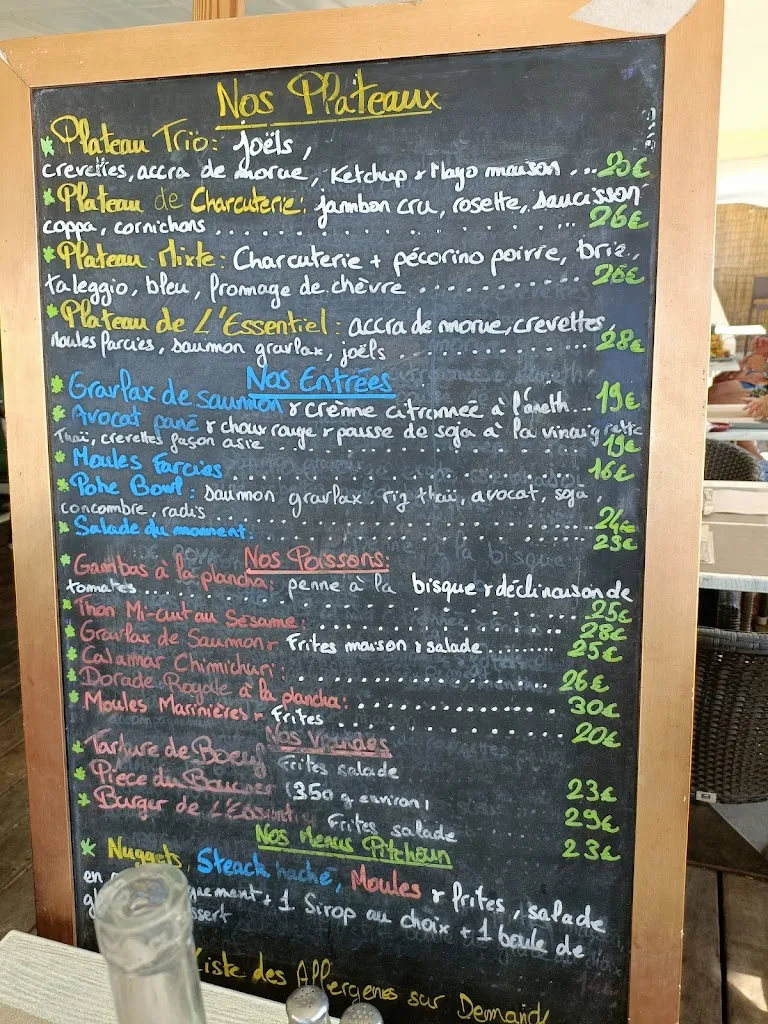 Nos Plateaux
Plateau Trio: joëls,
crevettes, accra de morue, Ketchup & Mayo maison ...
Plateau de Charcuterie: jambon cru, rosette, saucisson
coppa, cornichons ........ 26€
Plateau Mixte: Charcuterie + pécorino poivre, brie,
taleggio, bleu, fromage de chèvre ......... 26€
Plateau de L'Essentiel: accra de morue, crevettes,
Moules farcies, saumon gravlax, joëls ......... 28€
Nos Entrées
Gravlax de saumon & crème citronnée à l'aneth... 19€
Avocat pané & choux rouge & pousse de soja à la vinaigrette
Thaï, crevettes façon asie ......... 19€
Moules Farcies ......... 16€
Poke Bowl: saumon gravlax riz thaï, avocat, soja,
concombre, radis ......... 24€
Salade du moment: ......... 23€
Nos Poissons:
Gambas à la plancha: penne à la bisque & déclinaison de
tomates ......... 25€
Thon Mi-cuit au Sesame: ......... 28€
Gravlax de Saumon & Frites maison & salade ......... 25€
Calamar Chimichuri: ......... 26€
Dorade Royale à la plancha: ......... 30€
Moules Marinières & Frites ......... 20€
Nos Viandes
Tartare de Boeuf Frites salade 23€
Piece du Boucher (350 g environ) 29€
Burger de L'Essentiel Frites salade 23€
Nos Menus Pitchoun
Nuggets, Steack haché, Moules & frites, salade
en + 1 Sirop au choix + 1 boule de
Liste des Allergenes sur Demande